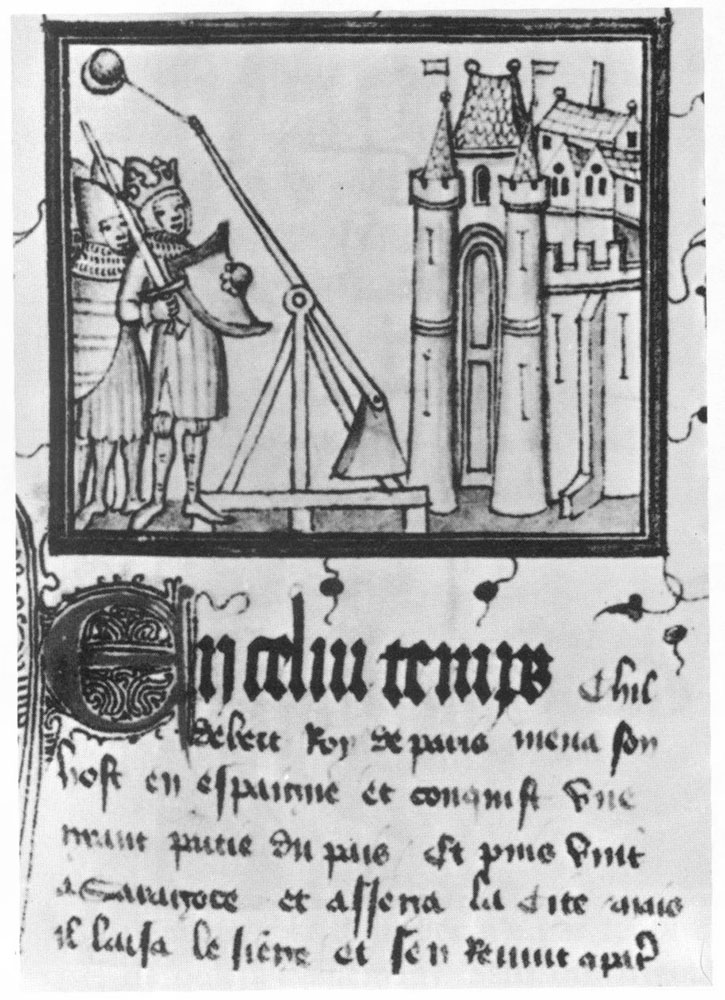 En celui temps Chil
debert Roy de paris mena son
host en espaigne et conquist vne
grant partie du pais Et puis vint
a Sarragoce et assega la Cite mais
il laisa le siege et sen Reuint a par